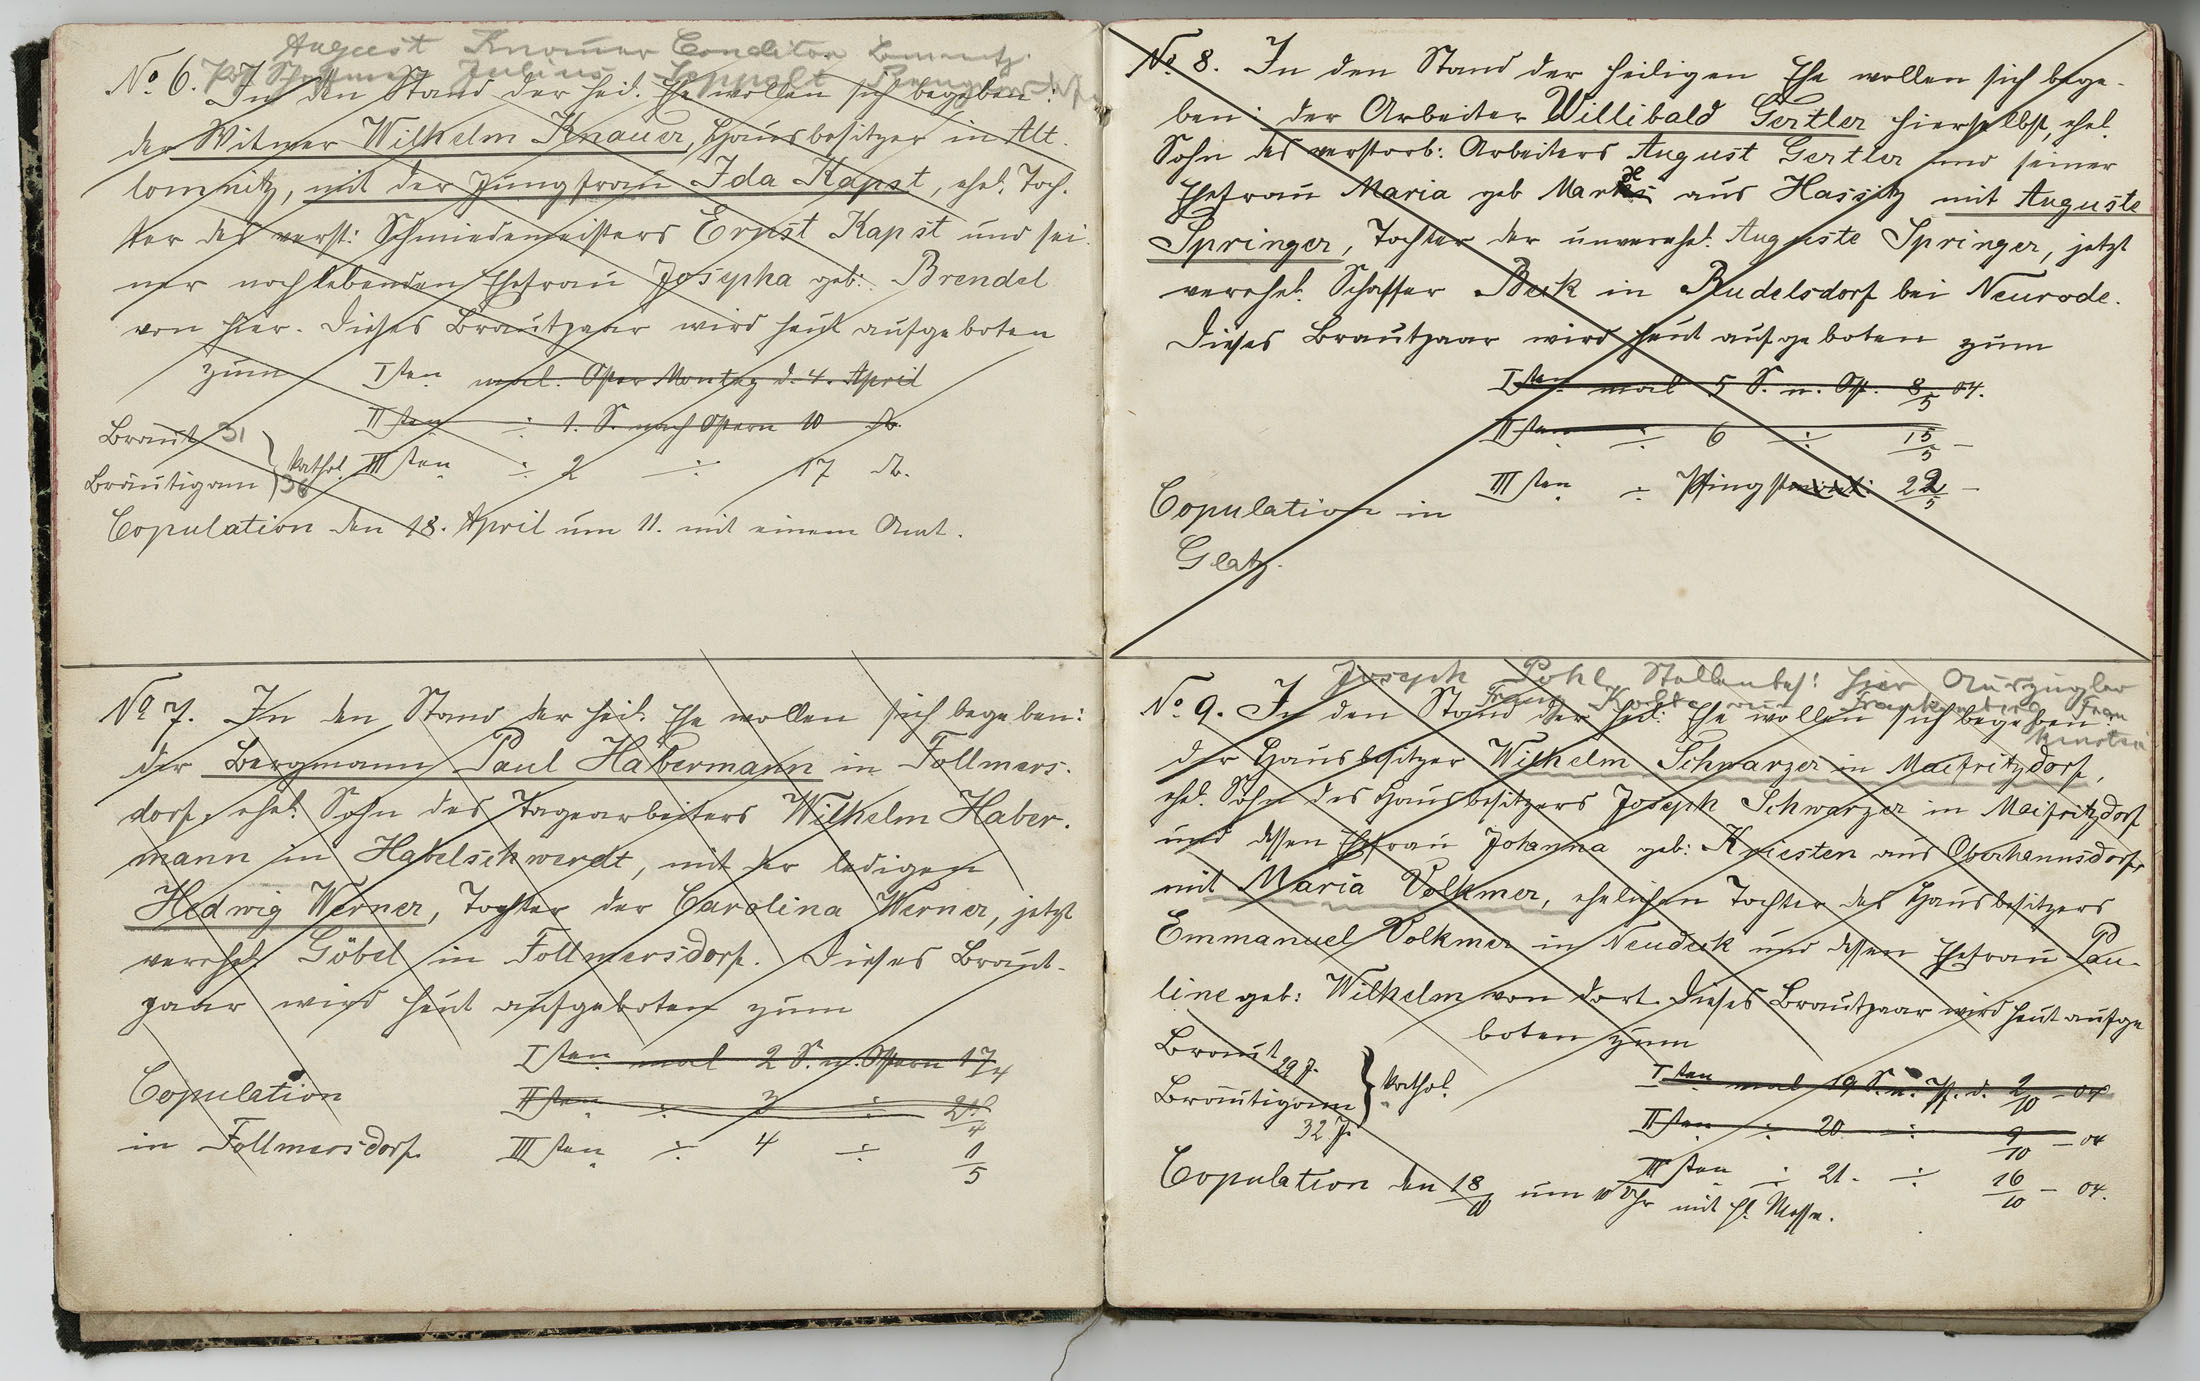 August Knauer Conditor Lomnitz.
Julius
No 6. In den Stand der heil. Ehe wollen sich begeben:
der Witwer Wilhelm Knauer, Hausbesitzer in Alt.
lomnitz, mit der Jungfrau Ida Kapst, ehel. Toch.
ter des verst: Schmiedemeisters Ernst Kapst und sei.
ner noch lebenden Ehefrau Josepha geb: Brendel
von hier. Dieses Brautpaar wird heut aufgeboten
zum Isten mal. Oster Montag d. 4. April
IIsten ÷ 1. S. nach Ostern 10 do.
Braut 31
Bräutigam 36 } kathol. IIIsten ÷ 2 ÷ 17 do.
Copulation den 18. April um 11. mit einem Amt.
No 7. In den Stand der heil. Ehe wollen sich begeben:
der Bergmann Paul Habermann in Follmers.
dorf, ehel. Sohn des Tagearbeiters Wilhelm Haber.
mann in Habelschwerdt, mit der ledigen
Hedwig Werner, Tochter der Carolina Werner, jetzt
verehel. Göbel in Follmersdorf. Dieses Braut-
paar wird heut aufgeboten zum
Isten mal 2 S. n. Ostern 17/4
Copulation IIsten ÷ 3 ÷ 24/4
in Follmersdorf. IIIsten ÷ 4 ÷ 1/5
No 8. In den Stand der heiligen Ehe wollen sich bege-
ben: der Arbeiter Willibald Gertler hierselbst, ehel.
Sohn des verstorb: Arbeiters August Gertler und seiner
Ehefrau Maria geb aus Hassitz mit Auguste
Springer, Tochter der unverehel. Auguste Springer, jetzt
verehel. Schaffer Beck in Rudelsdorf bei Neurode.
Dieses Brautpaar wird heut aufgeboten zum
Isten mal 5 S. n. Ost. 8/5 04.
IIsten ÷ 6 ÷ 15/5 –
IIIsten ÷ Pfingst 22/5 –
Copulation in
Glatz.
Joseph Pohl, Stellenbes: hier Auszügler
Franz Frankenstein
No 9. In den Stand der heil: Ehe wollen sich begeben:
der Hausbesitzer Wilhelm Schwarzer in Maifritzdorf,
ehel. Sohn des Hausbesitzers Joseph Schwarzer in Maifritzdorf
und dessen Ehefrau Johanna geb: Kniesten aus Oberhannsdorf,
mit Maria Volkmer, ehelichen Tochter des Hausbesitzers
Emmanuel Volkmer in Neudeck und dessen Ehefrau Pau-
line geb: Wilhelm von dort. Dieses Brautpaar wird heut aufge
boten zum
Braut 29 J.
Bräutigam 32 J. } kathol.
Isten mal 19 S. n. Pf. d. 2/10 – 04
IIsten ÷ 20 ÷ 9/10 – 04
IIIsten ÷ 21. ÷ 16/10 – 04.
Copulation den 18/10 um 10 Uhr mit hl. Messe.